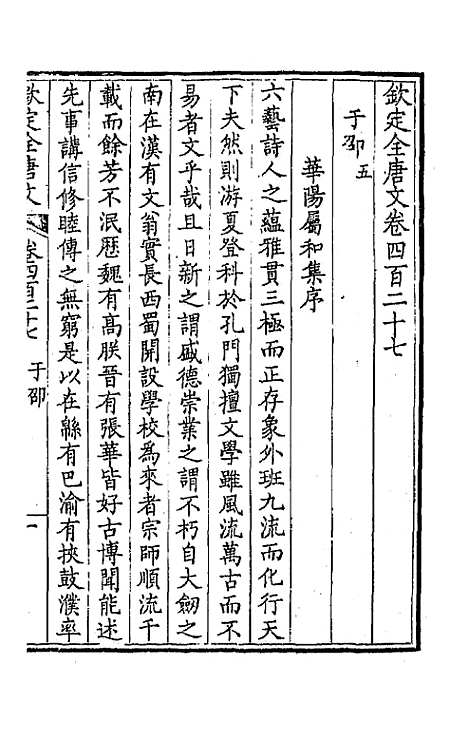 欽定全唐文卷四百二十七
于邵五
華陽屬和集序
六藝詩人之蘊雅貫三極而正存象外班九流而化行天
下夫然則游夏登科於孔門獨擅文學雖風流萬古而不
易者文乎哉且日新之謂盛德崇業之謂不朽自大劒之
南在漢有文翁實長西蜀開設學校為來者宗師順流千
載而餘芳不泯歷魏有高朕晉有張華皆好古博聞能述
先事講信修睦傳之無窮是以在緜有巴渝有挾鼓濮率
欽定全唐文
卷四百二十七
于邵
一